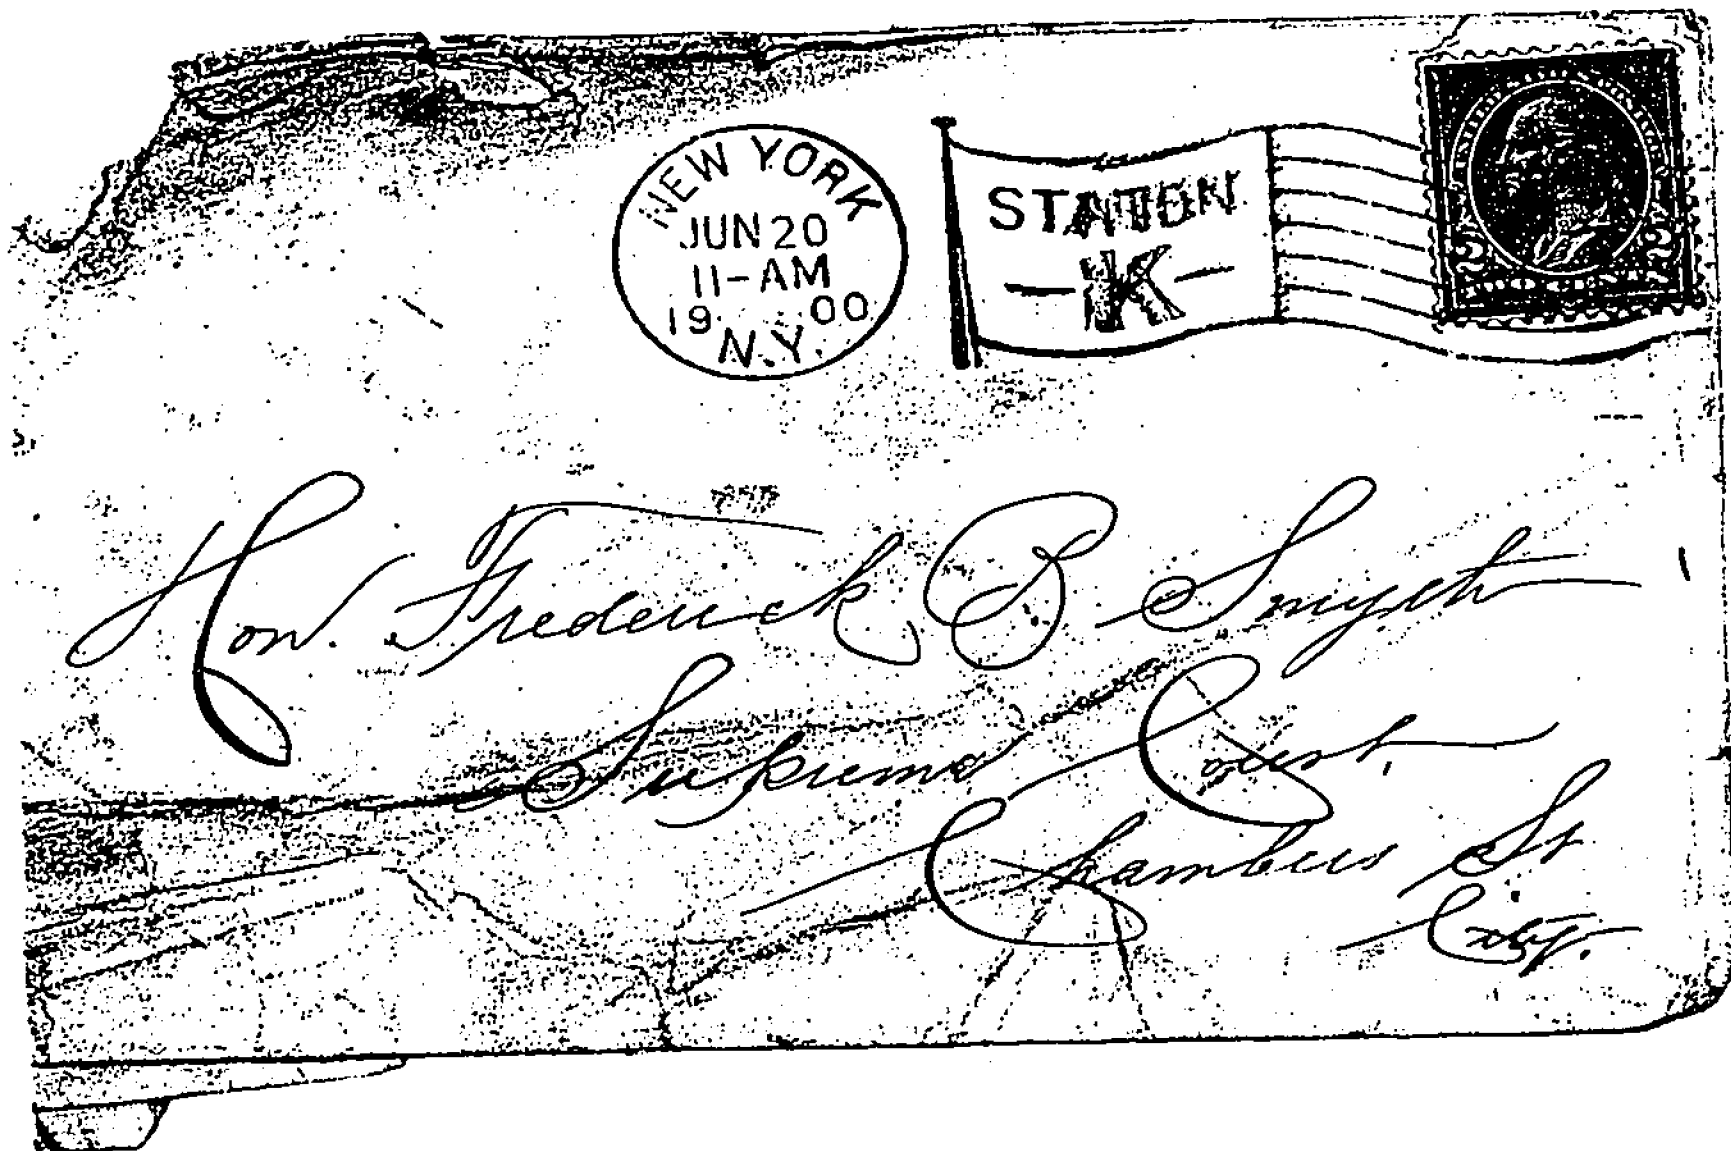 NEW YORK
JUN 20
11-AM
19 00
N.Y.
STATION
-K-
2 2
Hon. Frederick B Smyth
Supreme Court,
Chambers St
City.